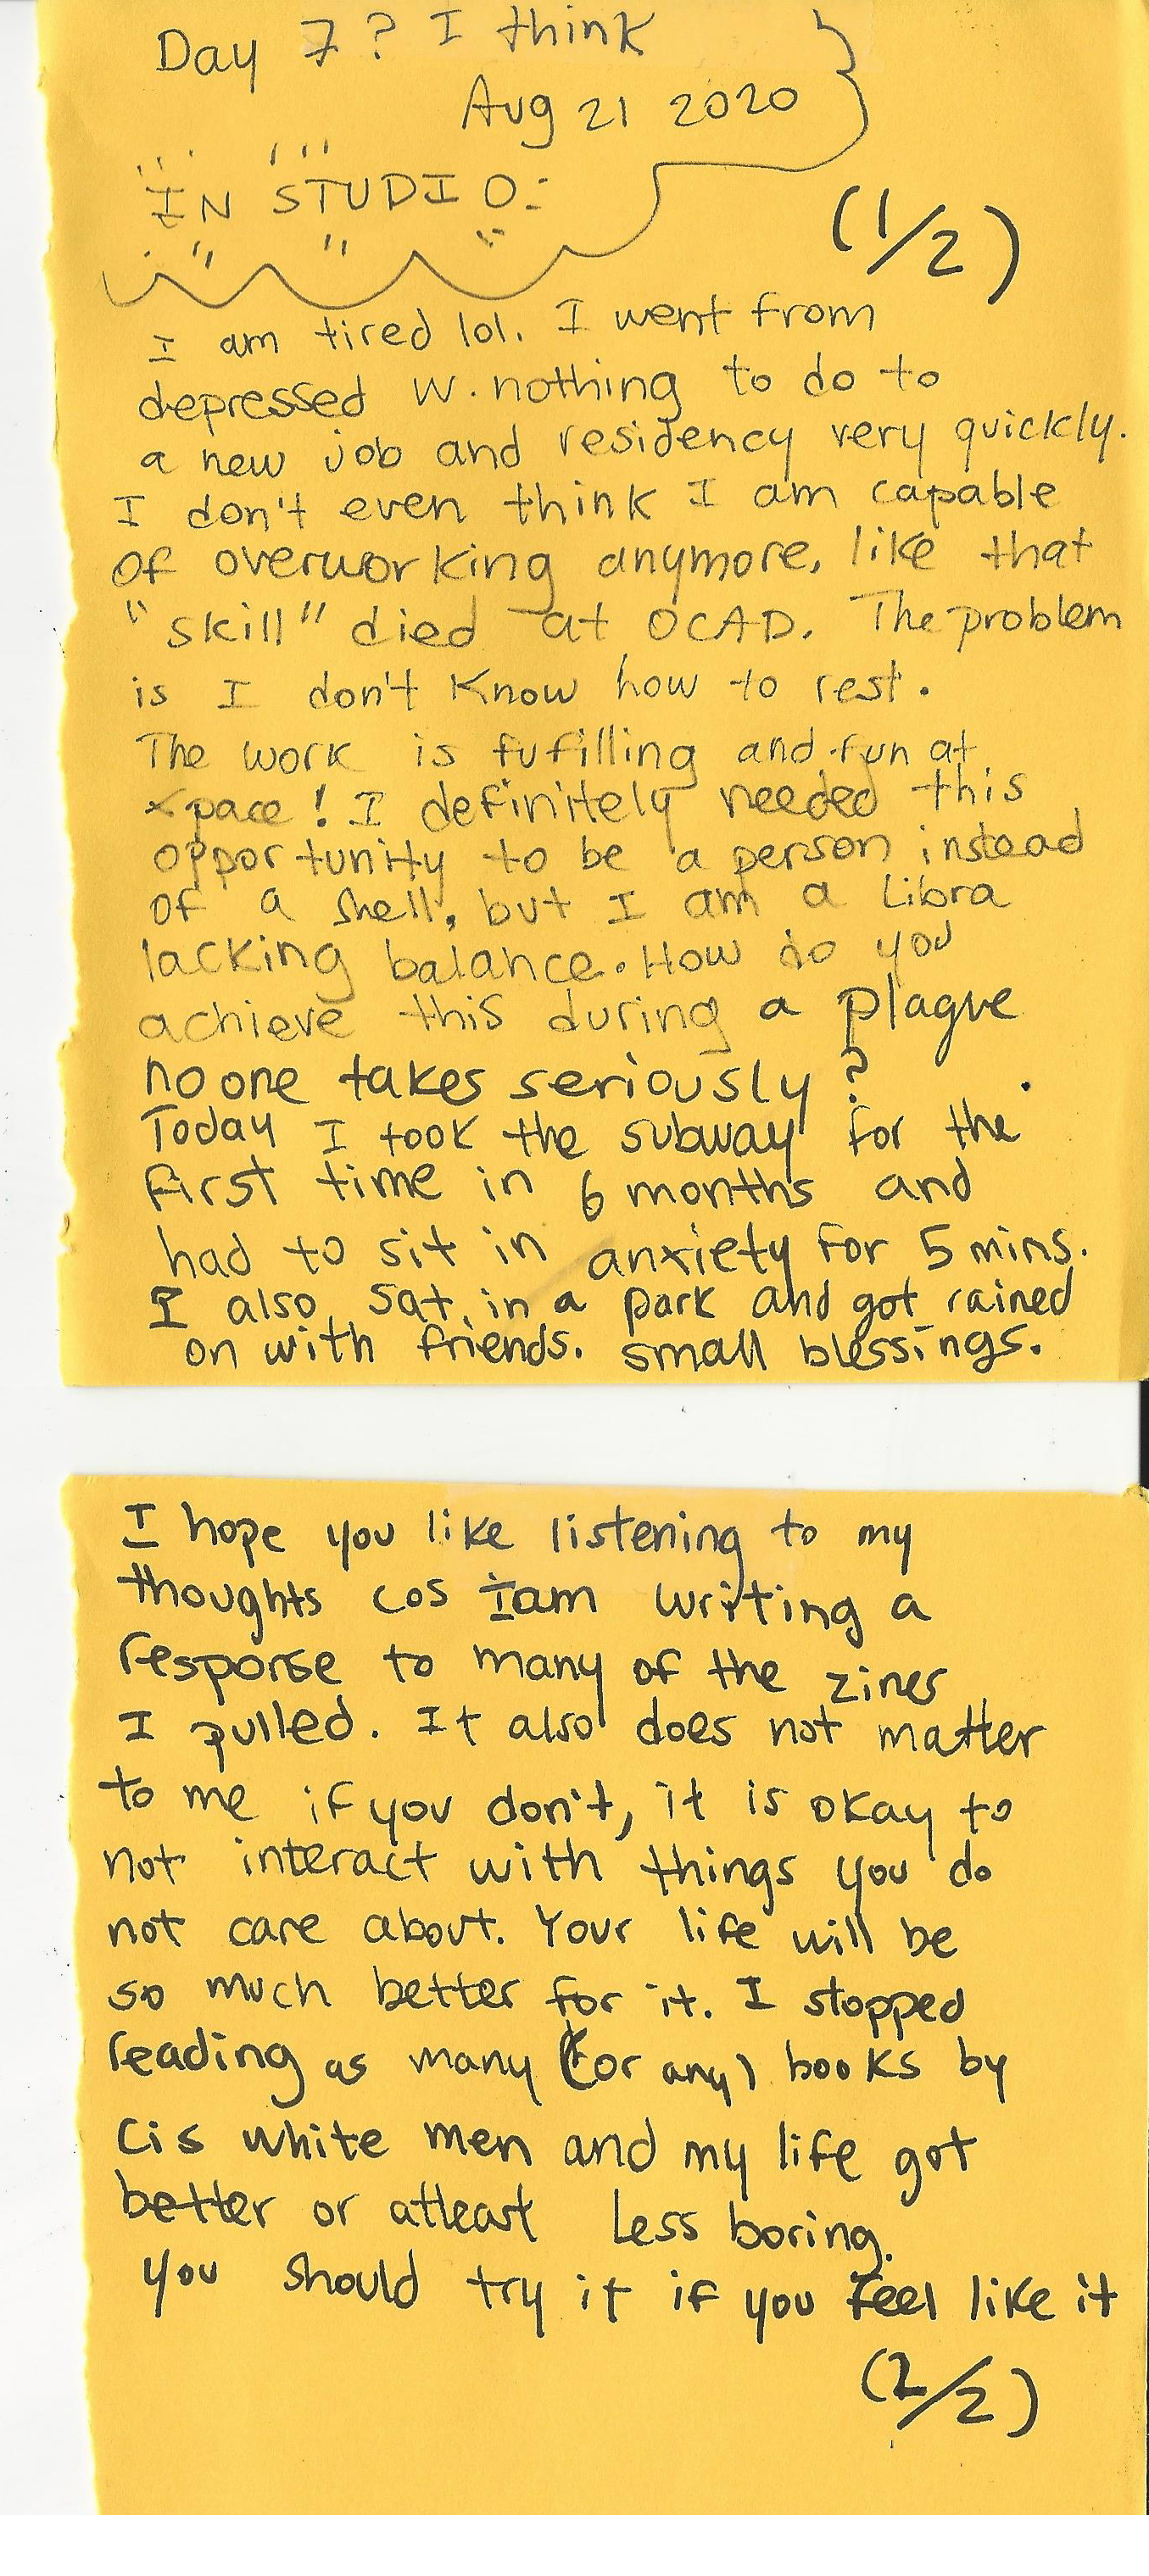 Day 7? I think
Aug 21 2020
IN STUDIO:
(1/2)
I am tired lol. I went from
depressed w. nothing to do to
a new job and residency very quickly.
I don't even think I am capable
of overworking anymore, like that
"skill" died at OCAD. The problem
is I don't know how to rest.
The work is fufilling and fun at
xpace! I definitely needed this
opportunity to be a person instead
of a shell, but I am a Libra
lacking balance. How do you
achieve this during a plague
no one takes seriously?
Today I took the subway for the
first time in 6 months and
had to sit in anxiety for 5 mins.
I also sat in a park and got rained
on with friends. small blessings.
I hope you like listening to my
thoughts cos I am writing a
response to many of the zines
I pulled. It also does not matter
to me if you don't, it is okay to
not interact with things you do
not care about. Your life will be
so much better for it. I stopped
reading as many (or any) books by
cis white men and my life got
better or atleast less boring.
you should try it if you feel like it
(2/2)